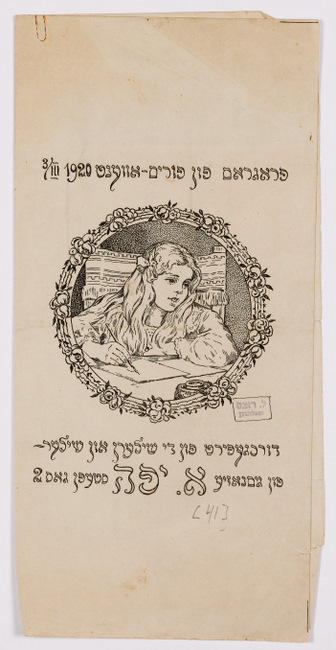 פראגראם פון פורים-אווענט 1920 3/III
דורכגעפירט פון די שילערן און שילער-
פון גימנאזיע א. יפה סטעפן גאס 2
[41]